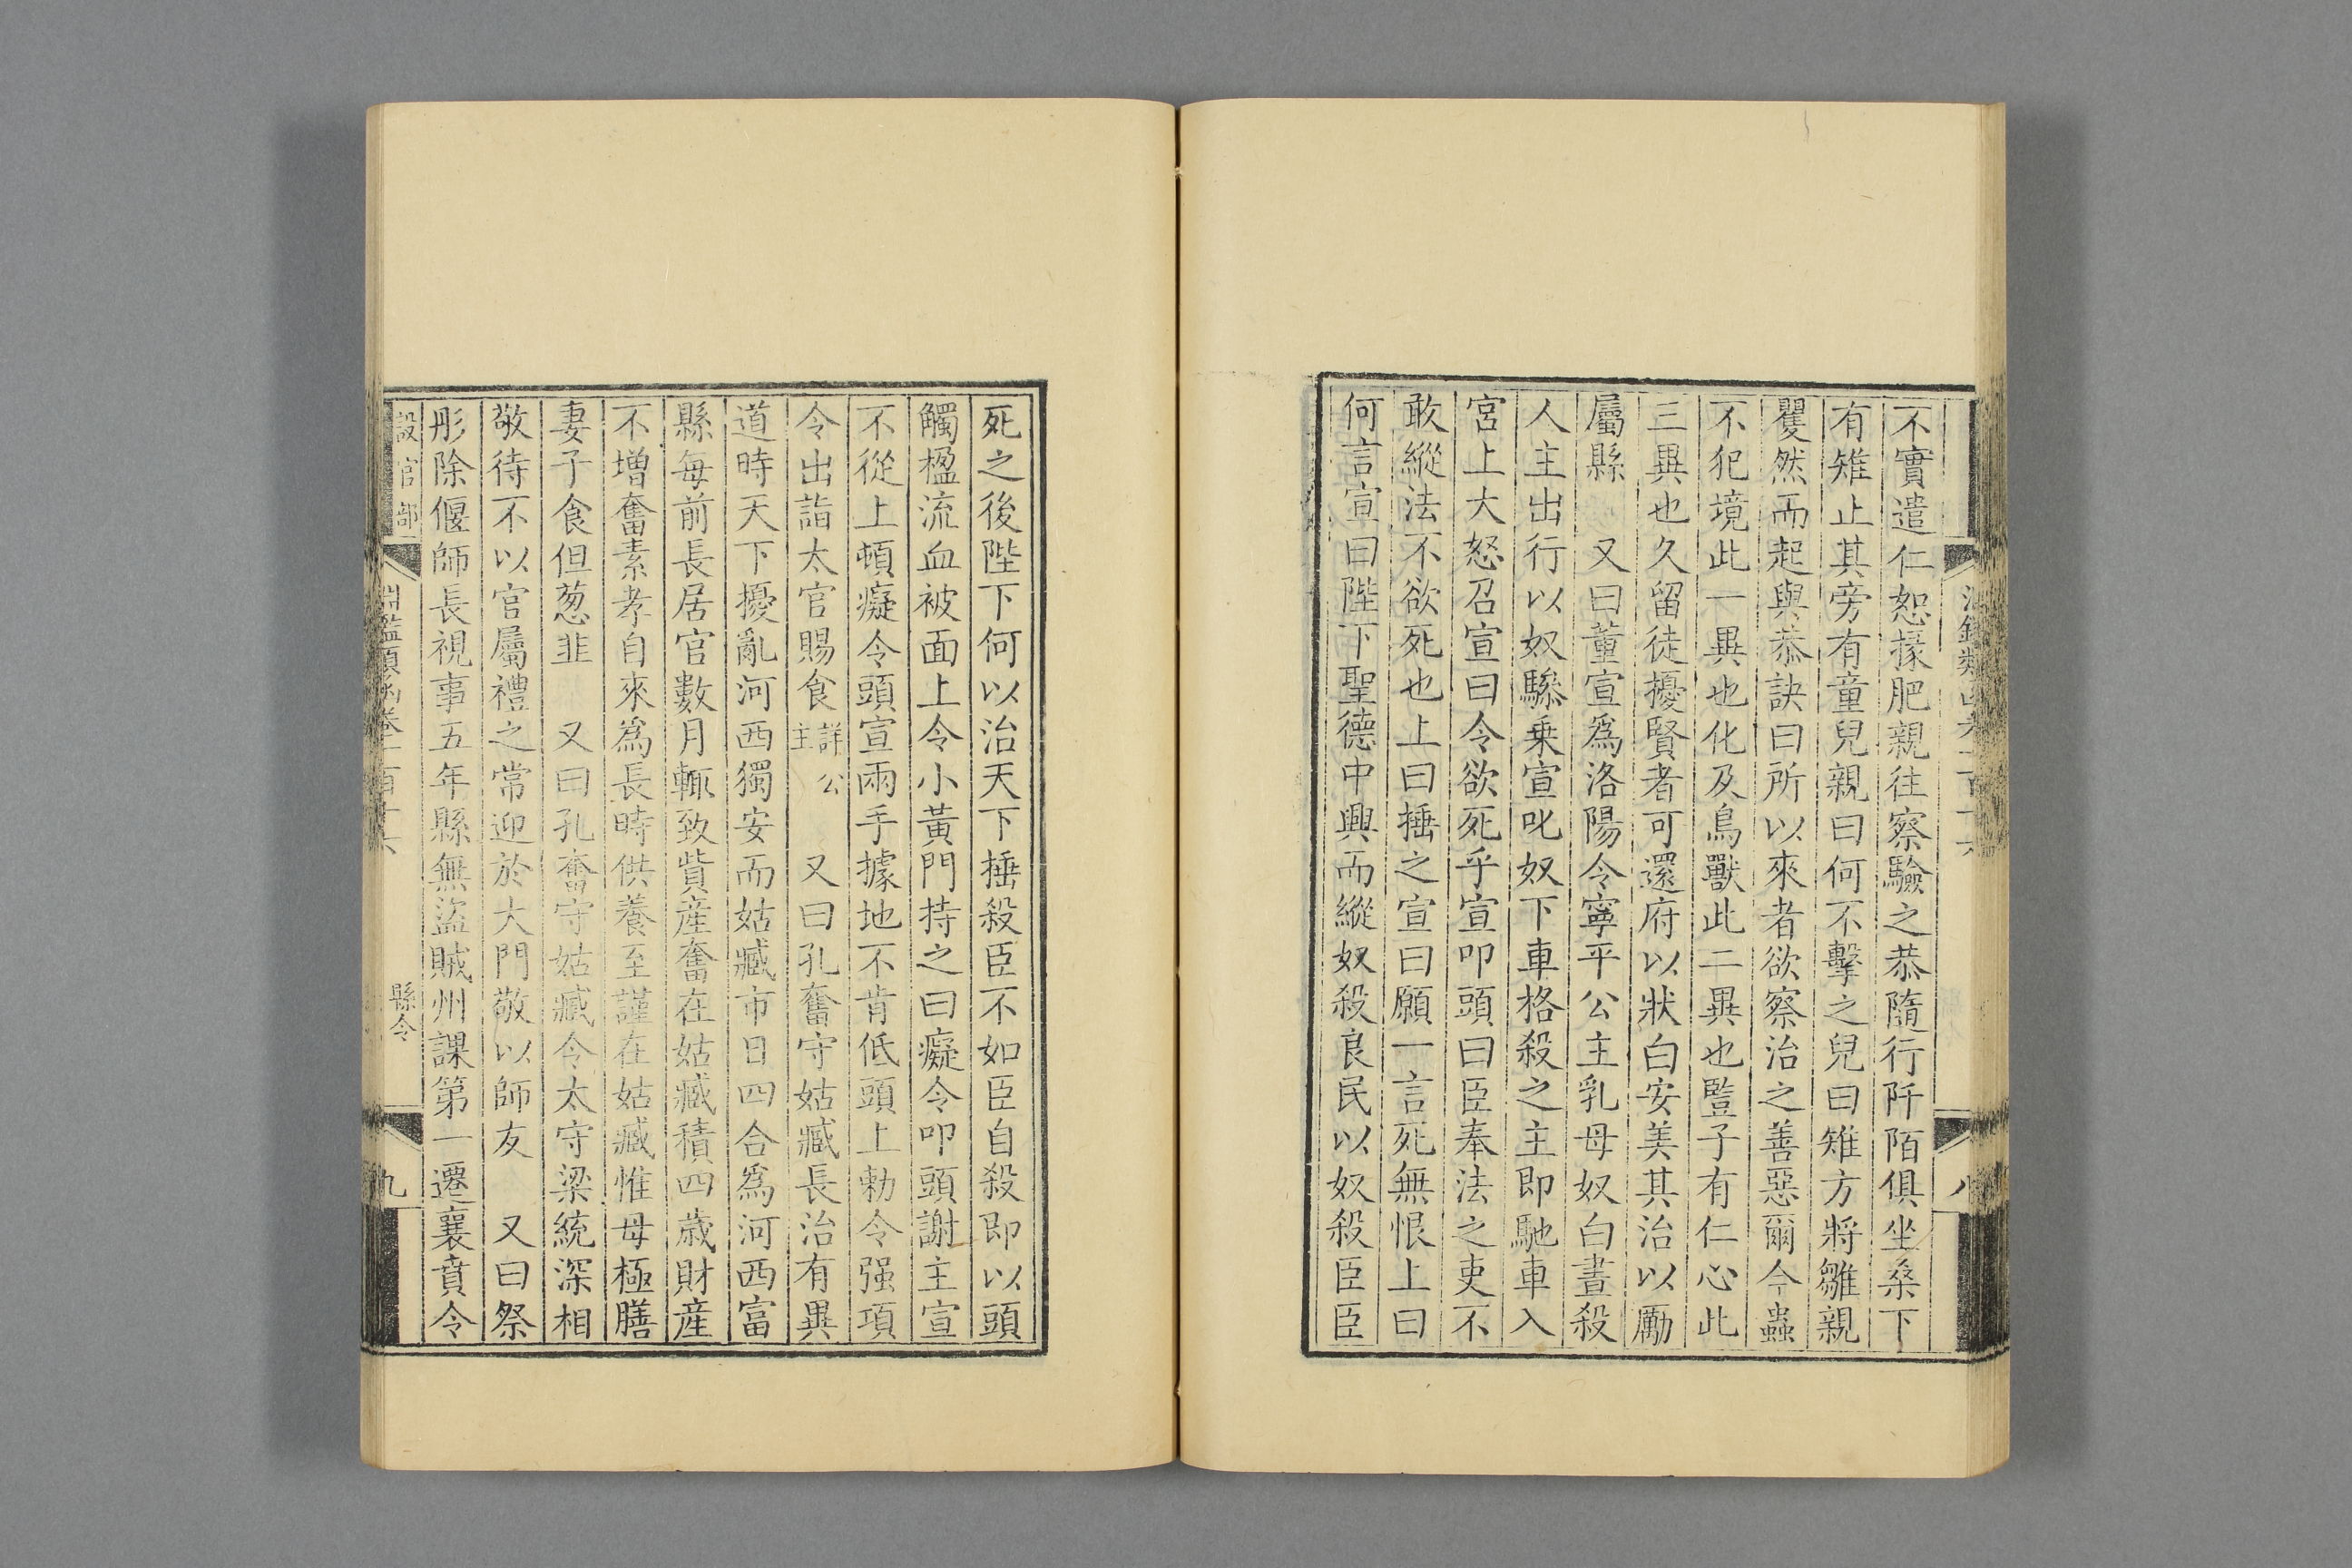 不實遣仁恕掾肥親往察驗之恭隨行阡陌俱坐桑下
有雉止其旁有童兒親曰何不擊之兒曰雉方將雛親
瞿然而起與恭訣曰所以來者欲察治之善惡爾今蟲
不犯境此一異也化及鳥獸此二異也豎子有仁心此
三異也久留徒擾賢者可還府以狀白安美其治以勵
屬縣　又曰董宣爲洛陽令寧平公主乳母奴白晝殺
人主出行以奴驂乗宣叱奴下車格殺之主即馳車入
宮上大怒召宣曰令欲死乎宣叩頭曰臣奉法之吏不
敢縱法不欲死也上曰捶之宣曰願一言死無恨上曰
何言宣曰陛下聖德中興而縱奴殺良民以奴殺臣臣
死之後陛下何以治天下捶殺臣不如臣自殺即以頭
觸楹流血被面上令小黃門持之曰癡令叩頭謝主宣
不從上頓癡令頭宣兩手據地不肯低頭上勅令强項
令出詣太官賜食詳公主　又曰孔奮守姑臧長治有異
道時天下擾亂河西獨安而姑臧市日四合爲河西富
縣每前長居官數月輒致貲産奮在姑臧積四歳財産
不增奮素孝自來爲長時供養至謹在姑臧惟母極膳
妻子食但葱韭　又曰孔奮守姑臧令太守梁統深相
敬待不以官屬禮之常迎於大門敬以師友　又曰祭
彤除偃師長視事五年縣無盜賊州課第一遷襄賁令
設官部
淵鑑類函卷一百十六
縣令
九
八